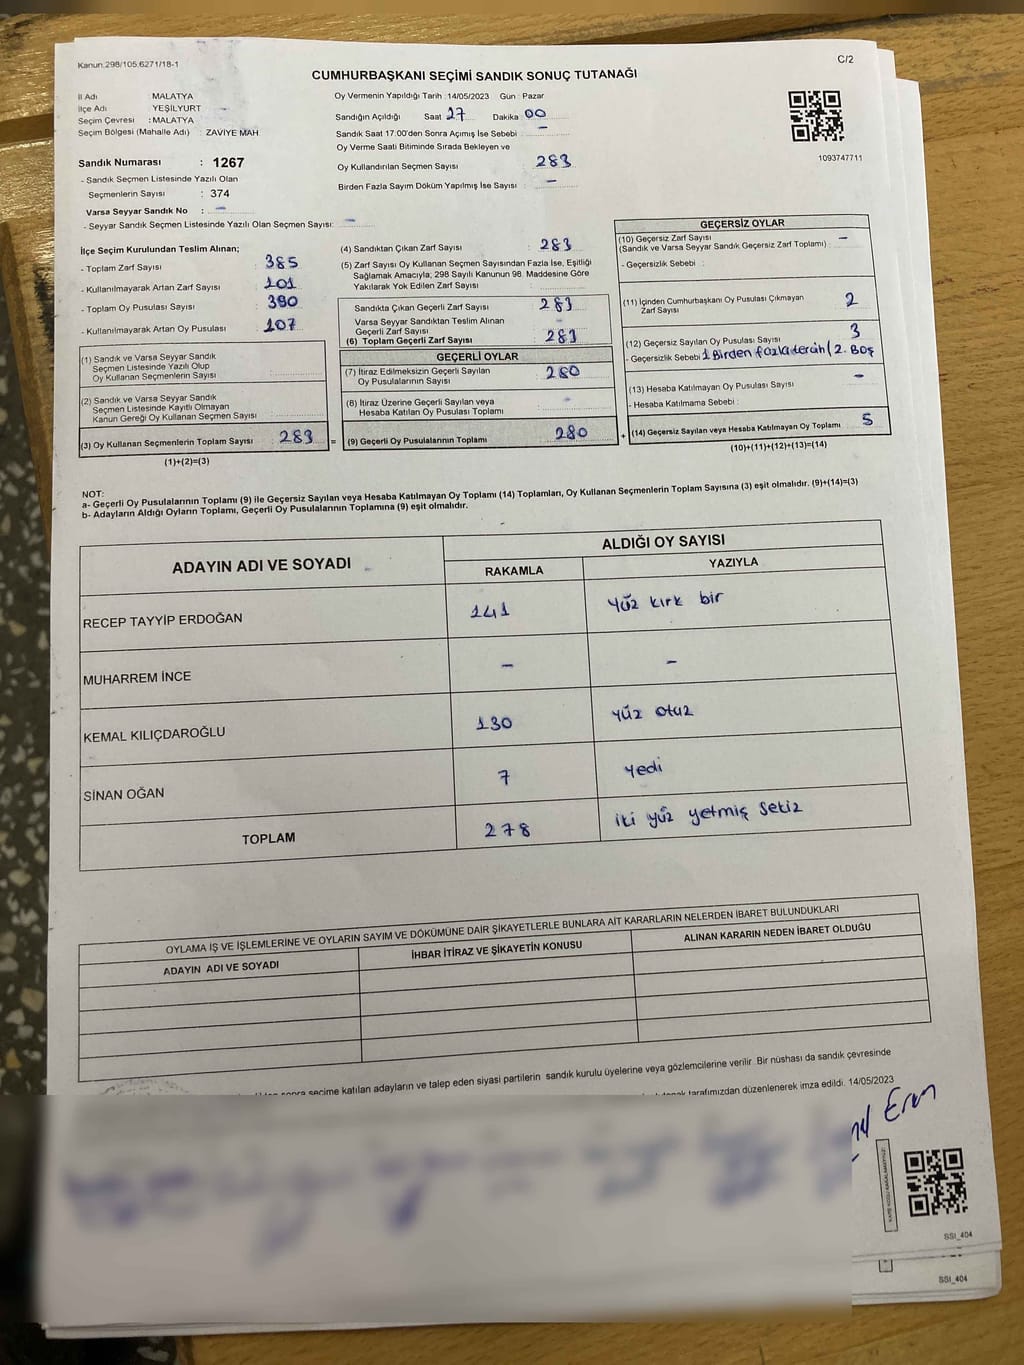 Kanun:298/105,6271/18-1
C/2
CUMHURBAŞKANI SEÇİMİ SANDIK SONUÇ TUTANAĞI
İl Adı MALATYA
İlçe Adı YEŞİLYURT -
Seçim Çevresi : MALATYA
Seçim Bölgesi (Mahalle Adı) : ZAVİYE MAH
Sandık Numarası : 1267
- Sandık Seçmen Listesinde Yazılı Olan
Seçmenlerin Sayısı : 374
Varsa Seyyar Sandık No : -
- Seyyar Sandık Seçmen Listesinde Yazılı Olan Seçmen Sayısı: -
Oy Vermenin Yapıldığı Tarih :14/05/2023 Gün : Pazar
Sandığın Açıldığı Saat 17 Dakika 00
Sandık Saat 17.00'den Sonra Açımış İse Sebebi : -
Oy Verme Saati Bitiminde Sırada Bekleyen ve
Oy Kullandırılan Seçmen Sayısı : 283
Birden Fazla Sayım Döküm Yapılmış İse Sayısı : -
1093747711
İlçe Seçim Kurulundan Teslim Alınan;
- Toplam Zarf Sayısı : 385
- Kullanılmayarak Artan Zarf Sayısı : 101
- Toplam Oy Pusulası Sayısı : 390
- Kullanılmayarak Artan Oy Pusulası : 107
(1) Sandık ve Varsa Seyyar Sandık
Seçmen Listesinde Yazılı Olup
Oy Kullanan Seçmenlerin Sayısı :
(2) Sandık ve Varsa Seyyar Sandık
Seçmen Listesinde Kayıtlı Olmayan
Kanun Gereği Oy Kullanan Seçmen Sayısı :
(3) Oy Kullanan Seçmenlerin Toplam Sayısı : 283 =
(1)+(2)=(3)
(4) Sandıktan Çıkan Zarf Sayısı : 283
(5) Zarf Sayısı Oy Kullanan Seçmen Sayısından Fazla İse, Eşitliği
Sağlamak Amacıyla; 298 Sayılı Kanunun 98. Maddesine Göre
Yakılarak Yok Edilen Zarf Sayısı :
Sandıkta Çıkan Geçerli Zarf Sayısı : 283
Varsa Seyyar Sandıktan Teslim Alınan
Geçerli Zarf Sayısı : -
(6) Toplam Geçerli Zarf Sayısı : 283
GEÇERLİ OYLAR
(7) İtiraz Edilmeksizin Geçerli Sayılan
Oy Pusulalarının Sayısı : 280
(8) İtiraz Üzerine Geçerli Sayılan veya
Hesaba Katılan Oy Pusulası Toplamı : -
(9) Geçerli Oy Pusulalarının Toplamı : 280 +
GEÇERSİZ OYLAR
(10) Geçersiz Zarf Sayısı
(Sandık ve Varsa Seyyar Sandık Geçersiz Zarf Toplamı) : -
- Geçersizlik Sebebi :
(11) İçinden Cumhurbaşkanı Oy Pusulası Çıkmayan
Zarf Sayısı : 2
(12) Geçersiz Sayılan Oy Pusulası Sayısı : 3
- Geçersizlik Sebebi 1 Birden fazla tercih / 2. Boş
(13) Hesaba Katılmayan Oy Pusulası Sayısı : -
- Hesaba Katılmama Sebebi :
(14) Geçersiz Sayılan veya Hesaba Katılmayan Oy Toplamı 5
(10)+(11)+(12)+(13)=(14)
NOT:
a- Geçerli Oy Pusulalarının Toplamı (9) ile Geçersiz Sayılan veya Hesaba Katılmayan Oy Toplamı (14) Toplamları, Oy Kullanan Seçmenlerin Toplam Sayısına (3) eşit olmalıdır. (9)+(14)=(3)
b- Adayların Aldığı Oyların Toplamı, Geçerli Oy Pusulalarının Toplamına (9) eşit olmalıdır.
ADAYIN ADI VE SOYADI
ALDIĞI OY SAYISI
RAKAMLA YAZIYLA
RECEP TAYYİP ERDOĞAN 141 yüz kırk bir
MUHARREM İNCE - -
KEMAL KILIÇDAROĞLU 130 yüz otuz
SİNAN OĞAN 7 yedi
TOPLAM 278 iki yüz yetmiş sekiz
OYLAMA İŞ VE İŞLEMLERİNE VE OYLARIN SAYIM VE DÖKÜMÜNE DAİR ŞİKAYETLERLE BUNLARA AİT KARARLARIN NELERDEN İBARET BULUNDUKLARI
ADAYIN ADI VE SOYADI İHBAR İTİRAZ VE ŞİKAYETİN KONUSU ALINAN KARARIN NEDEN İBARET OLDUĞU
sonra seçime katılan adayların ve talep eden siyasi partilerin sandık kurulu üyelerine veya gözlemcilerine verilir. Bir nüshası da sandık çevresinde
tarafımızdan düzenlenerek imza edildi. 14/05/2023
Eren
SSI_404
SSI_404